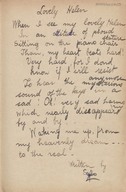 Lovely Helen
When I see my Lovely Helen
In an attitude of proud
Sitting on the piano chair
Then my heart beats hard
Very hard for I don't
know if I will resist
To hear the
sound of the keys
sad! Oh! very sad harms
which nearly disappears
by and by
Waking me up, from
my heavenly dream...
to the real!
Written by